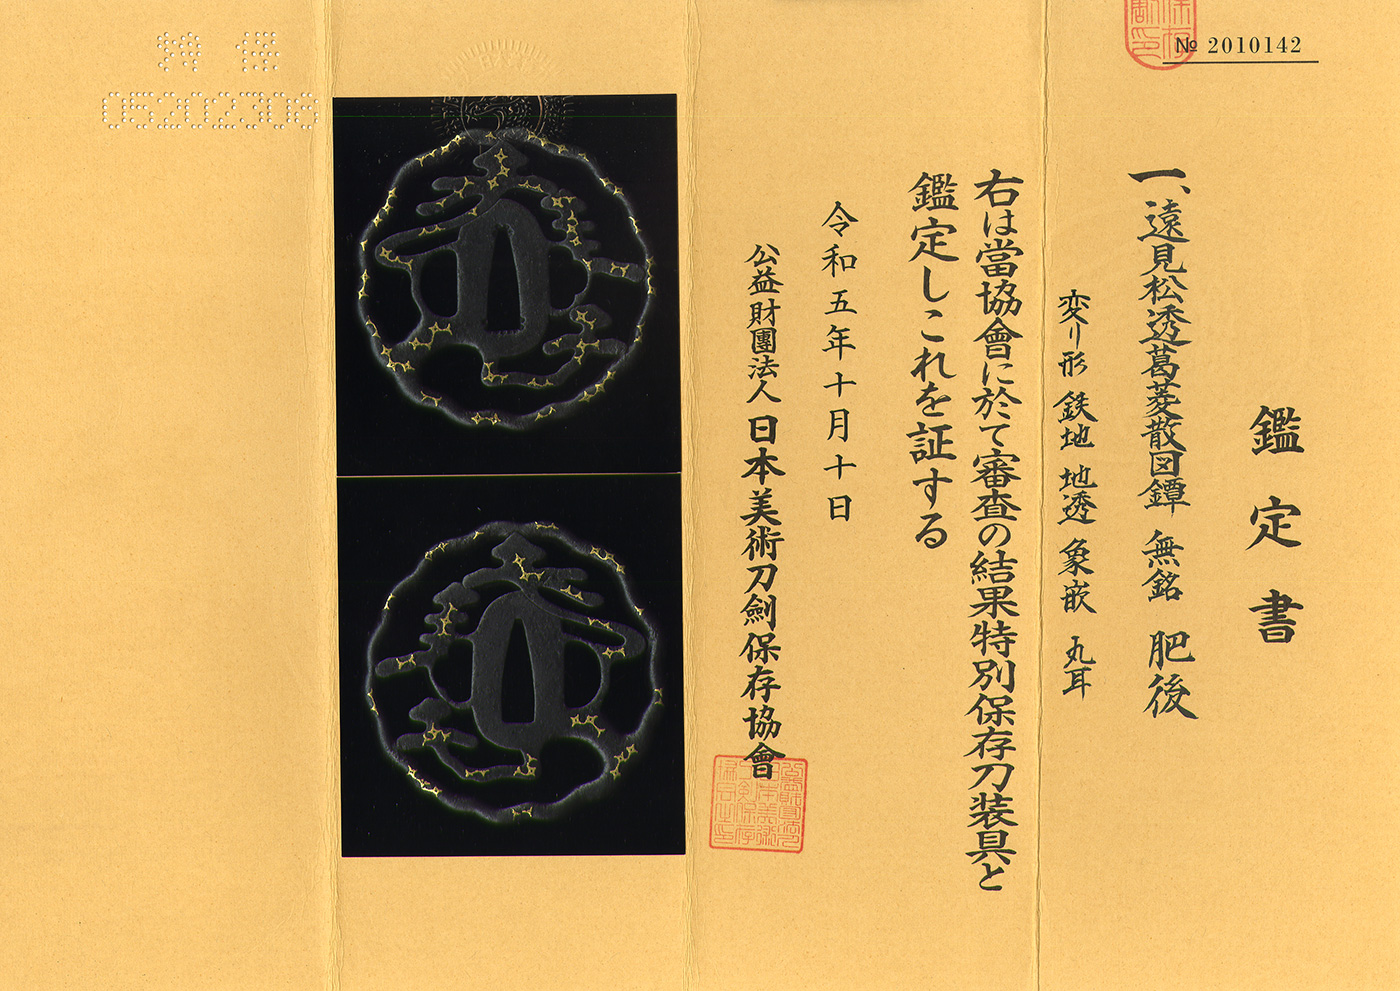 № 2010142
鑑定書
一、遠見松透葛菱散図鐔 無銘 肥後
変り形 鉄地 地透 象嵌 丸耳
右は當協會に於て審査の結果特別保存刀装具と
鑑定しこれを証する
令和五年十月十日
公益財團法人 日本美術刀劍保存協會
05202308